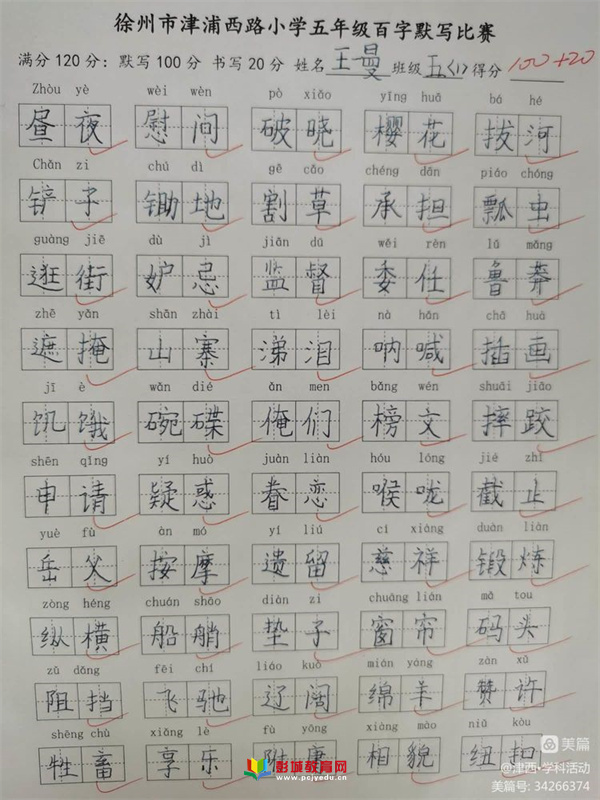 徐州市津浦西路小学五年级百字默写比赛
满分120分：默写100分 书写20分 姓名 王曼 班级 五(1) 得分 100+20
Zhòu yè wèi wèn pò xiǎo yīng huā bá hé
昼夜 慰问 破晓 樱花 拔河
Chǎn zi chú dì gē cǎo chéng dān piáo chóng
铲子 锄地 割草 承担 瓢虫
guàng jiē dù jì jiān dū wěi rèn lǔ mǎng
逛街 妒忌 监督 委任 鲁莽
zhē yǎn shān zhài tì lèi nà hǎn chā huà
遮掩 山寨 涕泪 呐喊 插画
jī è wǎn dié ǎn men bǎng wén shuāi jiāo
饥饿 碗碟 俺们 榜文 摔跤
shēn qǐng yí huò juàn liàn hóu lóng jié zhǐ
申请 疑惑 眷恋 喉咙 截止
yuè fù àn mó yí liú cí xiáng duàn liàn
岳父 按摩 遗留 慈祥 锻炼
zòng héng chuán shāo diàn zi chuāng lián mǎ tou
纵横 船艄 垫子 窗帘 码头
zǔ dǎng fēi chí liáo kuò mián yáng zàn xǔ
阻挡 飞驰 辽阔 绵羊 赞许
shēng chù xiǎng lè fù yōng xiàng mào niǔ kòu
牲畜 享乐 附庸 相貌 纽扣
彭城教育网
www.pcjyedu.cn
美篇
@津西·学科活动
美篇号: 34266374